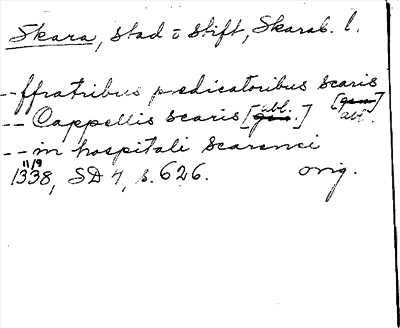 Skara, stad o stift, Skarab. l.
-- ffratribus predicatoribus scaris [gen. abl.]
-- Cappellis scaris [gen. abl.]
-- in hospitali scarensi
11/9 1338, SD 4, s. 626. orig.